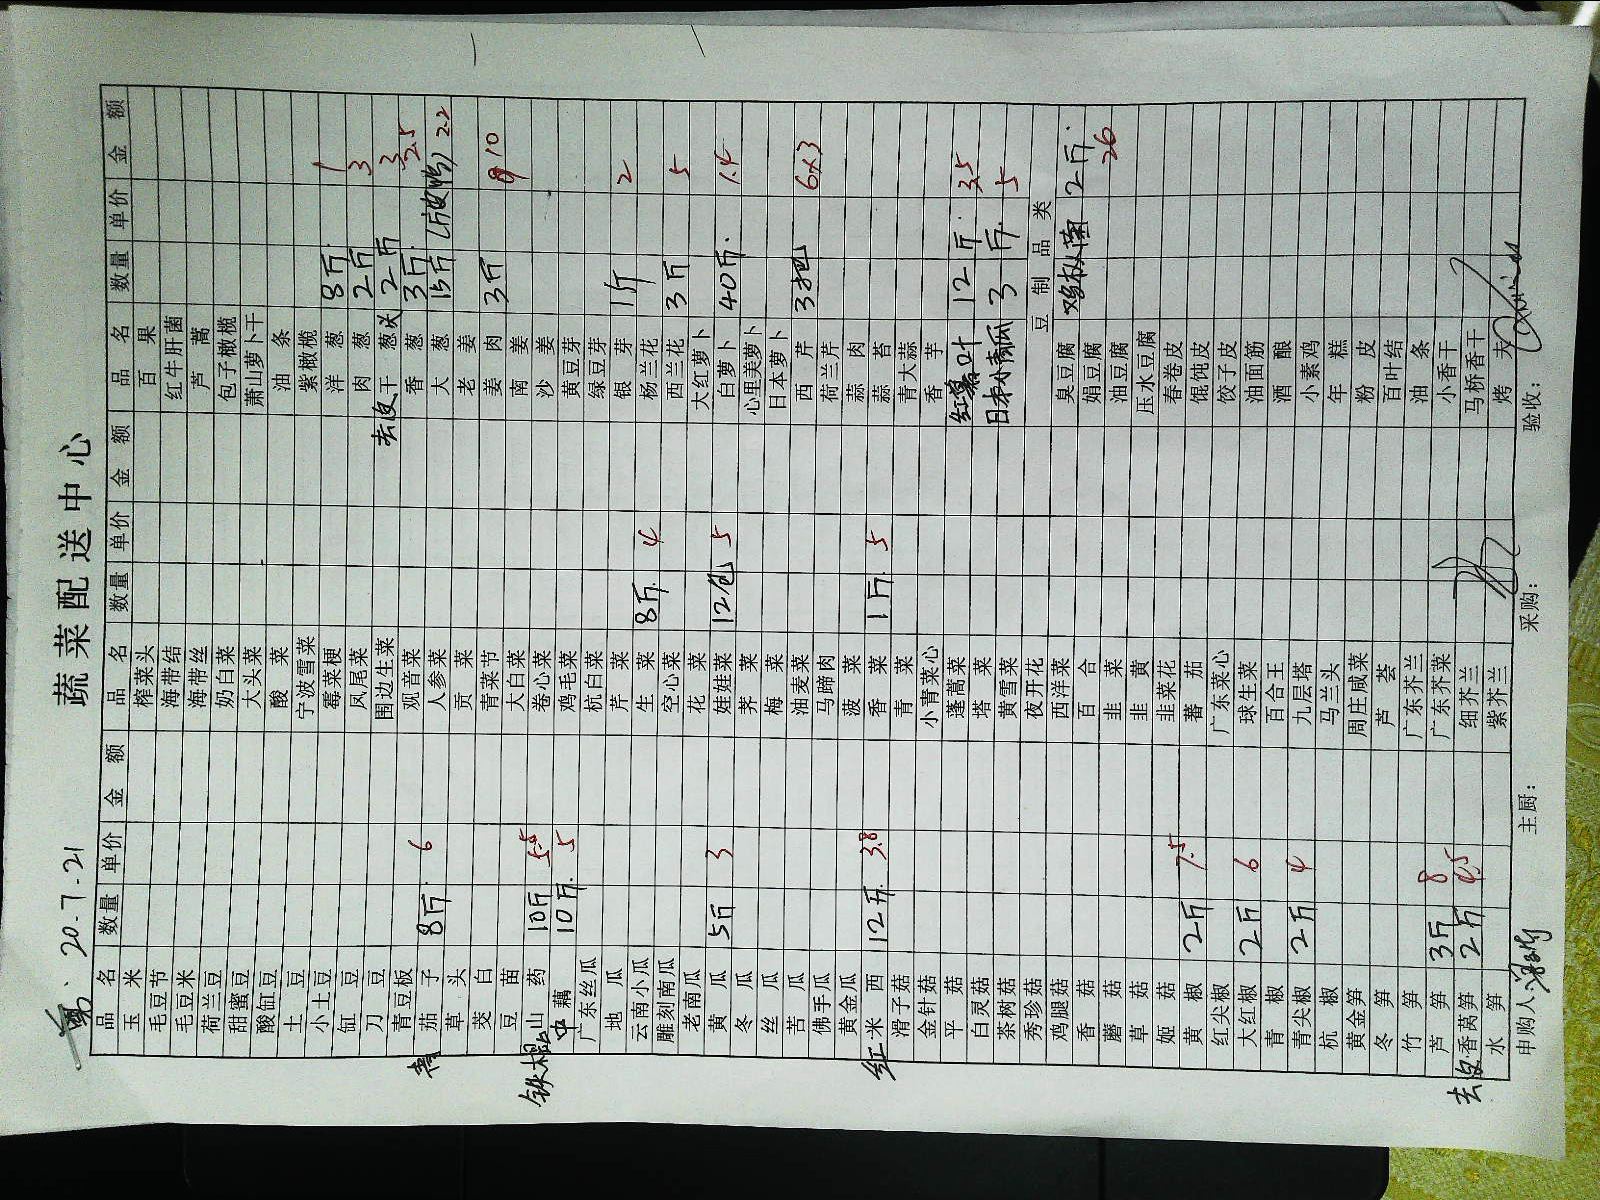 蔬菜配送中心
粤. 20.7.21
品名 数量 单价 金额 品名 数量 单价 金额 品名 数量 单价 金额
玉米 榨菜头 百果
毛豆节 海带结 红牛肝菌
毛豆米 海带丝 芦蒿
荷兰豆 奶白菜 包子橄榄
甜蜜豆 大头菜 萧山萝卜干
酸缸豆 酸菜 油条
土豆 宁波雪菜 紫橄榄
小土豆 霉菜梗 洋葱 8斤. 1
缸豆 凤尾菜 肉葱 2斤 3
刀豆 围边生菜 去皮干葱头 2斤 3
青豆板 观音菜 香葱 3斤. 2.5
茄子 8斤. 6 人参菜 大葱 15斤 2.2
草头 贡菜 老姜
茭白 青菜节 姜肉 3斤 10
豆苗 大白菜 南姜
铁棍山药 10斤 5.5 卷心菜 沙姜
中藕 10斤. 5 鸡毛菜 黄豆芽
广东丝瓜 杭白菜 绿豆芽
地瓜 芹菜 银芽 1斤 2
云南小瓜 生菜 8斤. 4 杨兰花
雕刻南瓜 空心菜 西兰花 3斤 5
老南瓜 花菜 大红萝卜
黄瓜 5斤 3 娃娃菜 12包 5 白萝卜 40斤. 1.4
冬瓜 荠菜 心里美萝卜
丝瓜 梅菜 日本萝卜
苦瓜 油麦菜 西芹 3把 6x3
佛手瓜 马蹄肉 荷兰芹
黄金瓜 菠菜 蒜肉
红米西 12斤. 3.8 香菜 1斤. 5 蒜苔
滑子菇 青菜 青大蒜
金针菇 小青菜心 香芋
平菇 蓬蒿菜 红薯叶 12斤. 3.5
白灵菇 塔菜
茶树菇 黄雪菜 日本小青瓜 3斤. 5
秀珍菇 夜开花 豆制品类
鸡腿菇 西洋菜 臭豆腐 鸡枞菌 2斤. 26
香菇 百合 娟豆腐
蘑菇 韭菜 油豆腐
草菇 韭黄 压水豆腐
姬菇 韭菜花 春卷皮
黄椒 2斤 7.5 蕃茄 馄饨皮
红尖椒 广东菜心 饺子皮
大红椒 2斤 6 球生菜 油面筋
青椒 百合王 酒酿
青尖椒 2斤 4 九层塔 小素鸡
杭椒 马兰头 年糕
黄金笋 周庄咸菜 粉皮
冬笋 芦荟 百叶结
竹笋 广东芥兰 油条
芦笋 3斤 8 广东芥菜 小香干
去皮香莴笋 2斤 4.5 细芥兰 马桥香干
水笋 紫芥兰 烤夫
申购人 主厨: 采购: 验收: